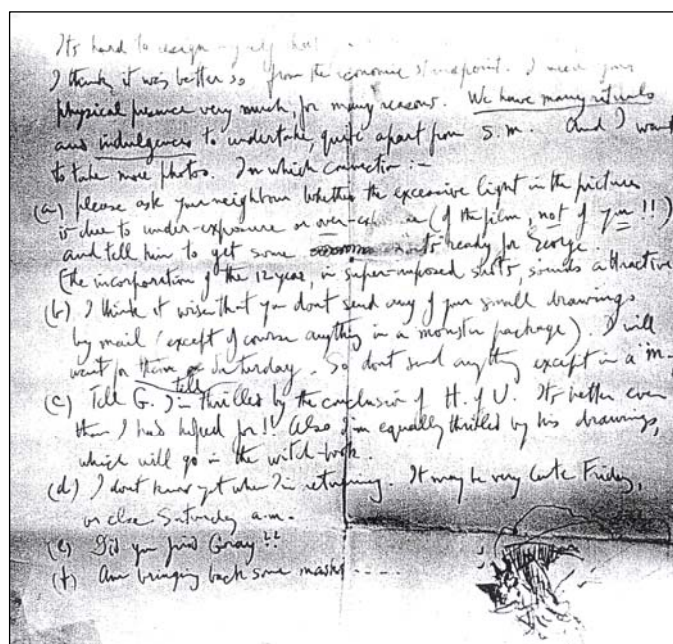 It's hard to resign myself but
I think it was better so from the economic standpoint. I need your
physical presence very much, for many reasons. We have many rituals
and indulgences to undertake, quite apart from s.m. And I want
to take more photos. In which connection :-
(a) please ask your neighbour whether the excessive light in the pictures
is due to under-exposure or over- (of the film, not of you!!)
and tell him to get some ready for George.
(the incorporation of the 12 year, in super-imposed shots, sounds attractive
(b) I think it wise that you dont send any of your small drawings
by mail (except of course anything in a monster package). I will
wait for them Saturday. So dont send anything except in a "m-
(c) Tell G. I'm thrilled by the conclusion of H. of U. Its better even
than I had hoped for!! Also I'm equally thrilled by his drawings,
which will go in the witch-book.
(d) I dont know yet when I'm returning. It may be very late Friday,
or else Saturday a.m.
(e) Did you find Goray!!
(f) Am bringing back some masks ----